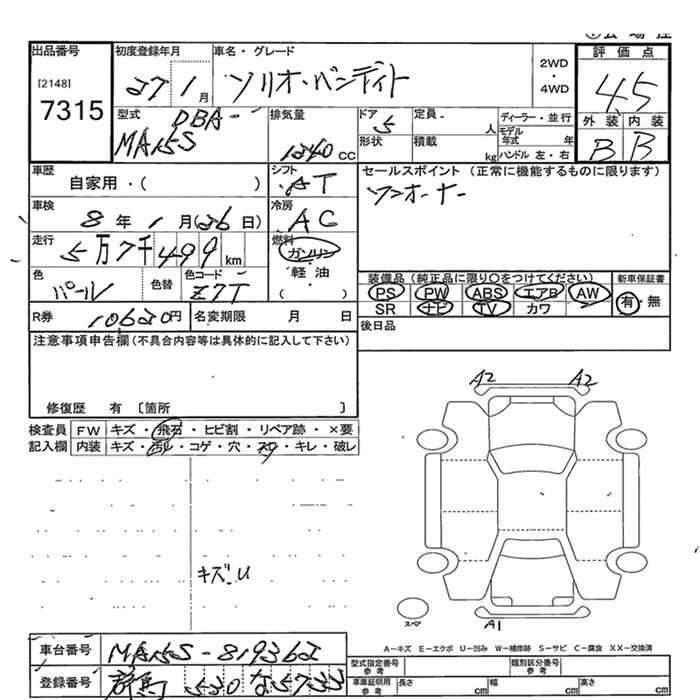 出品番号
[2148]
7315
初度登録年月
27 1月
車名・グレード
ソリオ・バンディト
2WD
・
4WD
評価点
4.5
外装 内装
B B
型式
DBA-
MA15S
排気量
1240 cc
ドア
5
形状
定員 人
積載 kg
ディーラー・並行
モデル年式 年
ハンドル 左・右
車歴
自家用・( )
シフト
AT
セールスポイント (正常に機能するものに限ります)
ワンオーナー
車検
8年 1月(26日)
冷房
AC
走行
5万7千499km
燃料
ガソリン
・
軽油
( )
色
パール
色替
色コード
Z7T
装備品 (純正品に限り○をつけてください)
新車保証書
PS PW ABS エアB AW
有・無
SR ナビ TV カワ
R券 10620円
名変期限 月 日
後日品
注意事項申告欄(不具合内容等は具体的に記入して下さい)
修復歴 有 〔箇所 〕
検査員
記入欄
FW キズ・飛石・ヒビ割・リペア跡・×要
内装 キズ・汚れ・コゲ・穴・スレ・キレ・破レ
キズ.U
A2 A2
スペア
A1
A-キズ E-エクボ U-凹み W-補修跡 S-サビ C-腐食 XX-交換済
車台番号
MA15S-819362
登録番号
群馬 530 な5733
型式指定番号
参考
類別区分番号
参考
車庫証明用
参考
長さ cm
幅 cm
高さ cm